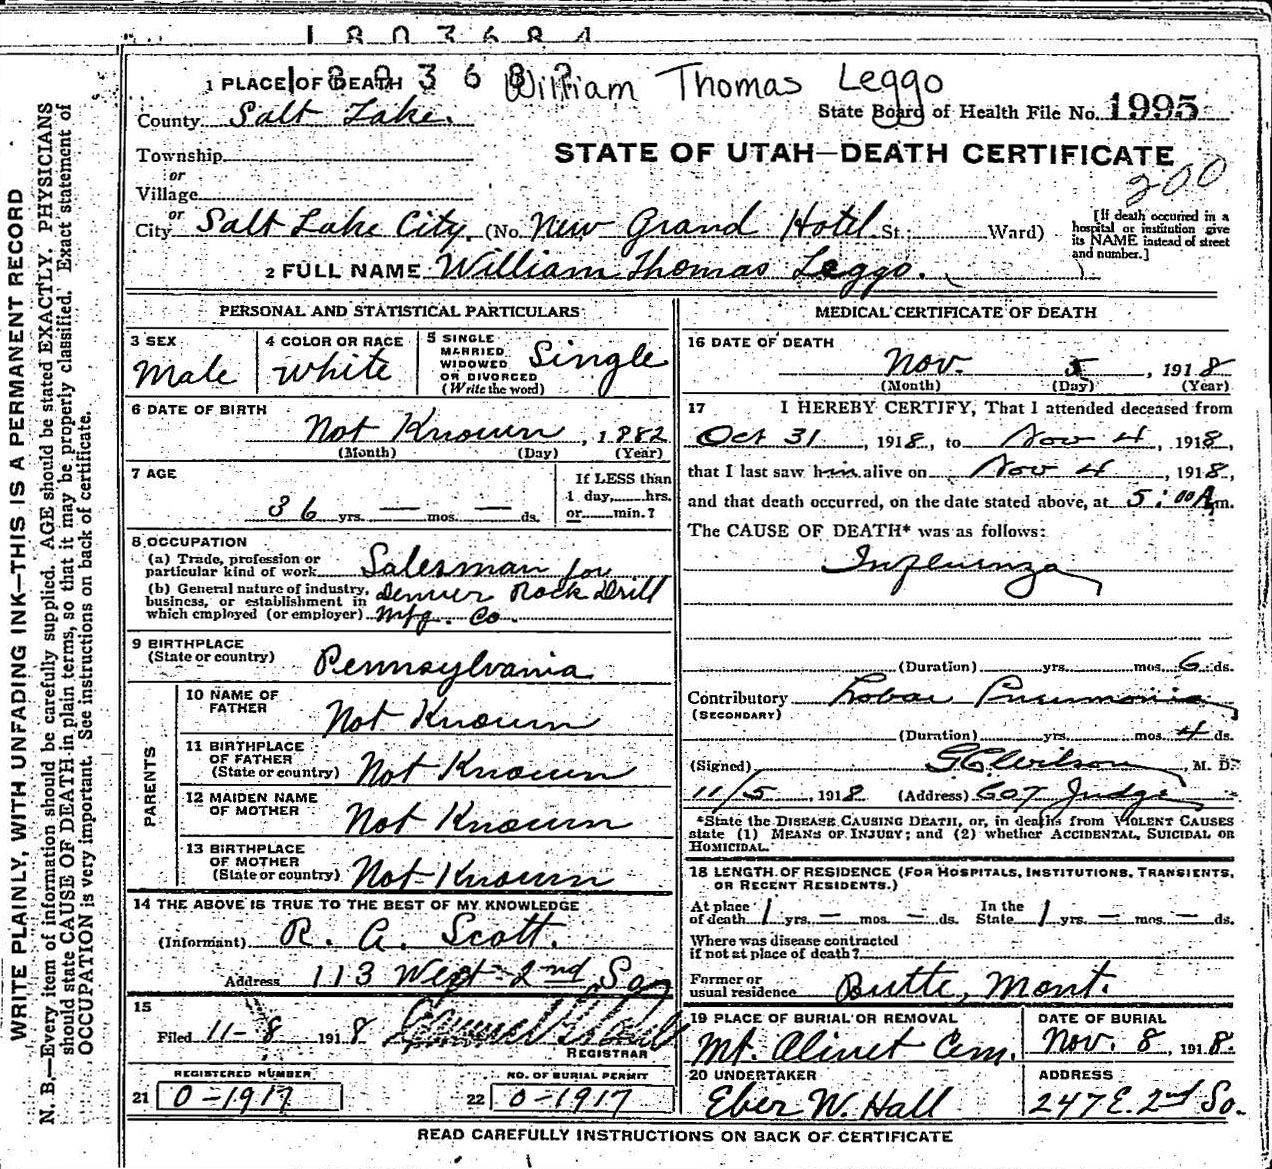 1803684
1 PLACE OF DEATH
William Thomas Leggo
County Salt Lake.
State Board of Health File No. 1995
Township
or
Village
STATE OF UTAH—DEATH CERTIFICATE
200
or
City Salt Lake City. (No. New Grand Hotel St.; Ward)
[If death occurred in a hospital or institution give its NAME instead of street and number.]
2 FULL NAME William Thomas Leggo.
PERSONAL AND STATISTICAL PARTICULARS
3 SEX
Male
4 COLOR OR RACE
White
5 SINGLE
MARRIED
WIDOWED
OR DIVORCED
(Write the word)
Single
6 DATE OF BIRTH
Not Known, 1882
(Month) (Day) (Year)
7 AGE
36 yrs. — mos. — ds.
If LESS than
1 day, hrs.
or min.?
8 OCCUPATION
(a) Trade, profession or
particular kind of work Salesman for
(b) General nature of industry,
business, or establishment in
which employed (or employer) Denver Rock Drill
Mfg. Co.
9 BIRTHPLACE
(State or country) Pennsylvania
PARENTS
10 NAME OF
FATHER Not Known
11 BIRTHPLACE
OF FATHER
(State or country) Not Known
12 MAIDEN NAME
OF MOTHER Not Known
13 BIRTHPLACE
OF MOTHER
(State or country) Not Known
14 THE ABOVE IS TRUE TO THE BEST OF MY KNOWLEDGE
(Informant) R. A. Scott.
Address 113 West 2nd So
15
Filed 11-8 1918
REGISTRAR
REGISTERED NUMBER
21 0-1917
NO. OF BURIAL PERMIT
22 0-1917
MEDICAL CERTIFICATE OF DEATH
16 DATE OF DEATH
Nov. 5, 1918
(Month) (Day) (Year)
17 I HEREBY CERTIFY, That I attended deceased from
Oct 31, 1918, to Nov 4, 1918,
that I last saw him alive on Nov 4, 1918,
and that death occurred, on the date stated above, at 5:00 A.m.
The CAUSE OF DEATH* was as follows:
Influenza
(Duration) yrs. mos. 6 ds.
Contributory Lobar Pneumonia
(SECONDARY)
(Duration) yrs. mos. 4 ds.
(Signed) G.C. Wilson, M. D.
11/5, 1918 (Address) 607 Judge
*State the DISEASE CAUSING DEATH, or, in deaths from VIOLENT CAUSES
state (1) MEANS OF INJURY; and (2) whether ACCIDENTAL, SUICIDAL OR
HOMICIDAL.
18 LENGTH OF RESIDENCE (FOR HOSPITALS, INSTITUTIONS, TRANSIENTS,
OR RECENT RESIDENTS.)
At place
of death 1 yrs. — mos. — ds.
In the
State 1 yrs. — mos. — ds.
Where was disease contracted
if not at place of death?
Former or
usual residence Butte, Mont.
19 PLACE OF BURIAL OR REMOVAL
Mt. Olivet Cem.
DATE OF BURIAL
Nov. 8, 1918.
20 UNDERTAKER
Eber W. Hall
ADDRESS
247 E. 2nd So.
READ CAREFULLY INSTRUCTIONS ON BACK OF CERTIFICATE
WRITE PLAINLY, WITH UNFADING INK—THIS IS A PERMANENT RECORD
N. B.—Every item of information should be carefully supplied. AGE should be stated EXACTLY. PHYSICIANS
should state CAUSE OF DEATH in plain terms, so that it may be properly classified. Exact statement of
OCCUPATION is very important. See instructions on back of certificate.